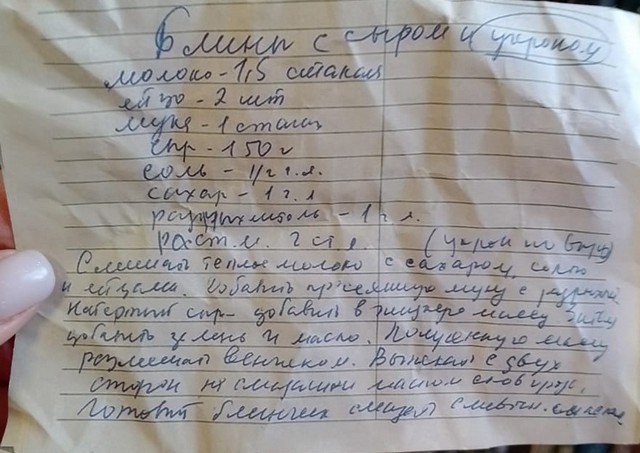 Блины с сыром и укропом
молоко - 1,5 стакана
яйцо - 2 шт
мука - 1 стакан
сыр - 150 г
соль - 1/2 ч.л.
сахар - 1 ч.л
разрыхлитель - 1 ч л.
раст.м. 2 ст л. (укроп по вкусу)
Смешать теплое молоко с сахаром, солью
и яйцами. Добавить просеянную муку с разрыхл.
Натертый сыр добавить в жидкую массу
добавить зелень и масло. Полученную массу
размешать венчиком. Выпекать с двух
сторон на смазанной маслом сковороде.
Готовый блинчик смазать сливочн. маслом.